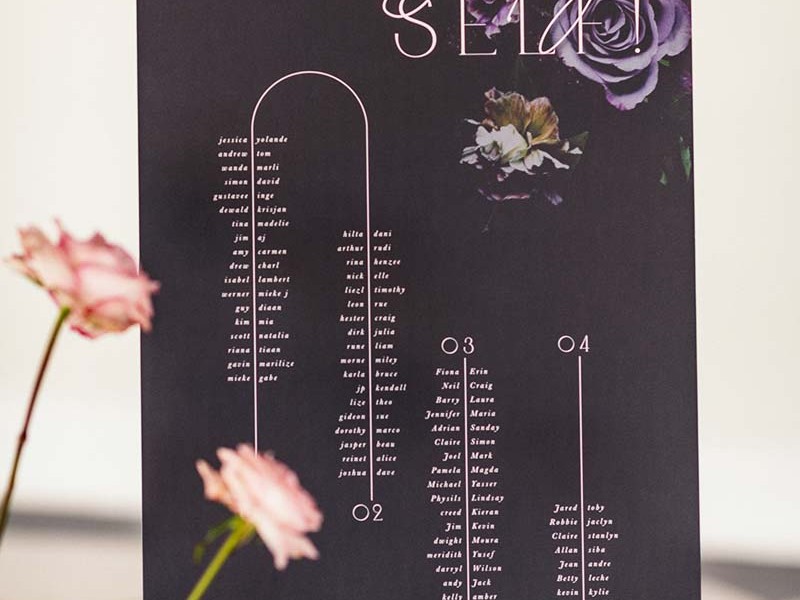 SELF!
jessica yolande
andrew tom
wanda marli
simon david
gustavee inge
dewald krisjan
tina madelie
jim aj
amy carmen
drew charl
isabel lambert
werner mieke j
guy diaan
kim mia
scott natalia
riana tiaan
gavin marilize
mieke gabe
hilta dani
arthur rudi
rina henzee
nick elle
liezl timothy
leon rue
hester craig
dirk julia
rune liam
morne miley
karla bruce
jp kendall
lize theo
gideon sue
dorothy marco
jasper beau
reinet alice
joshua dave
02
03
Fiona Erin
Neil Craig
Barry Laura
Jennifer Maria
Adrian Sanday
Claire Simon
Joel Mark
Pamela Magda
Michael Yasser
Physils Lindsay
creed Kieran
Jim Kevin
dwight Moura
meredith Yusef
darryl Wilson
andy Jack
kelly amber
04
Jared toby
Robbie jaclyn
Claire stanlyn
Allan siba
Jean andre
Betty leche
kevin kylie